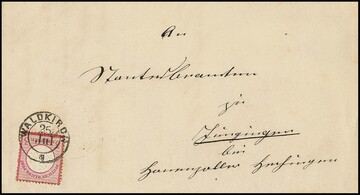 An
Standesbeamten
zu
Jungingen
bei
Hohenzoller Hechingen
WALDKIRCH
25
Jul